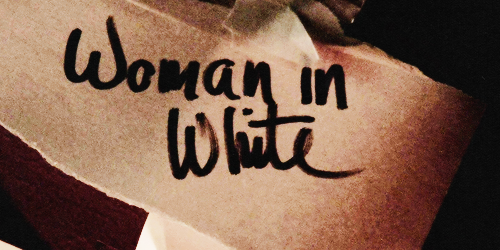 Woman in
White